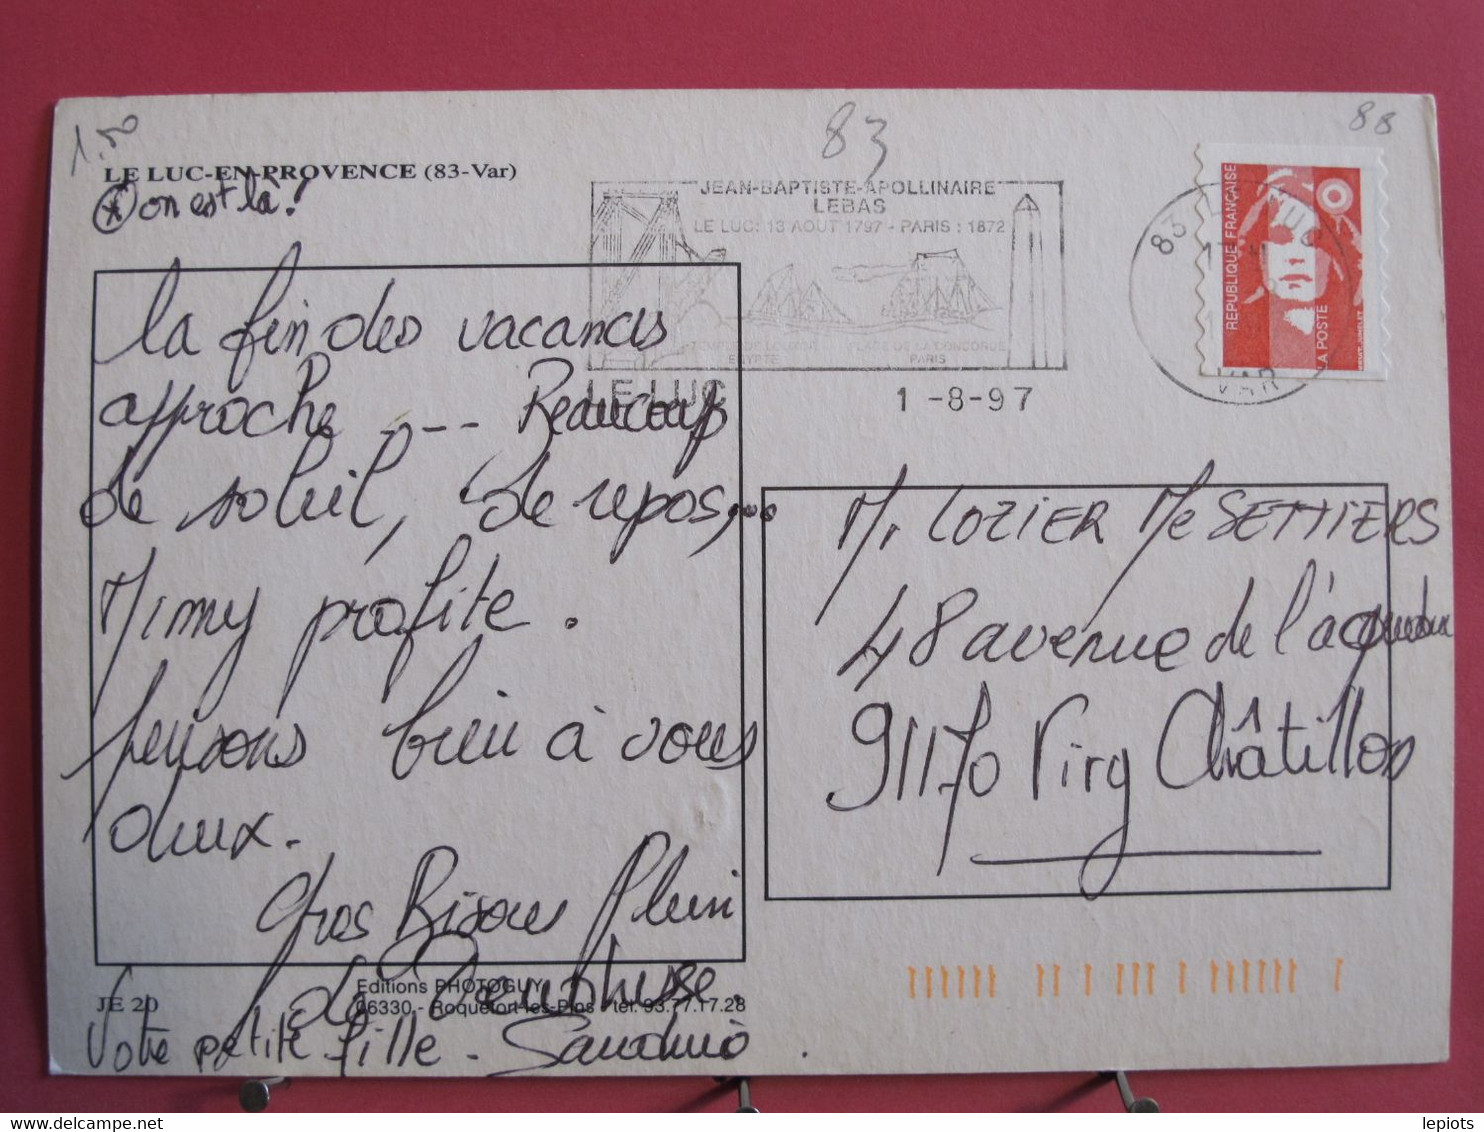 1.50
83
88
LE LUC-EN-PROVENCE (83-Var)
* on est là !
JEAN-BAPTISTE-APOLLINAIRE
LEBAS
LE LUC: 13 AOUT 1797 - PARIS : 1872
EGYPTE
PLACE DE LA CONCORDE
PARIS
LE LUC
1-8-97
83 LE LUC
VAR
REPUBLIQUE FRANÇAISE
LA POSTE
la fin des vacances
approche ---- Beaucoup
de soleil, de repos,...
Mimy profite.
pensons bien à vous
deux.
Gros Bisous Plein
de
Votre petite fille -
Mr LOZIER Me SETTIERS
48 avenue de l'aqueduc
91170 Viry Châtillon
JE 20
Editions PHOTOGUY
06330 - Roquefort-les-Pins - tél. 93.77.17.28
lepiots